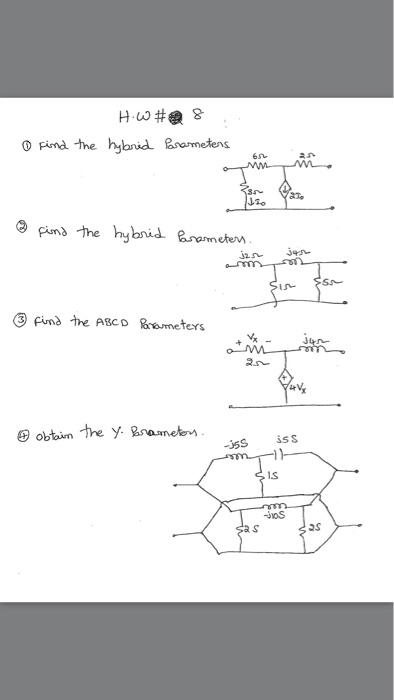 H.W # 8
① Find the hybrid Parameters
6Ω 2Ω
3Ω
↓I₀ 2I₀
② Find the hybrid Parameters.
j2Ω j4Ω
1Ω 5Ω
③ Find the ABCD Parameters
+ Vx - j4Ω
2Ω
+
4Vx
④ obtain the Y. Parameters.
-j5S j5S
1S
-j10S
2S 2S